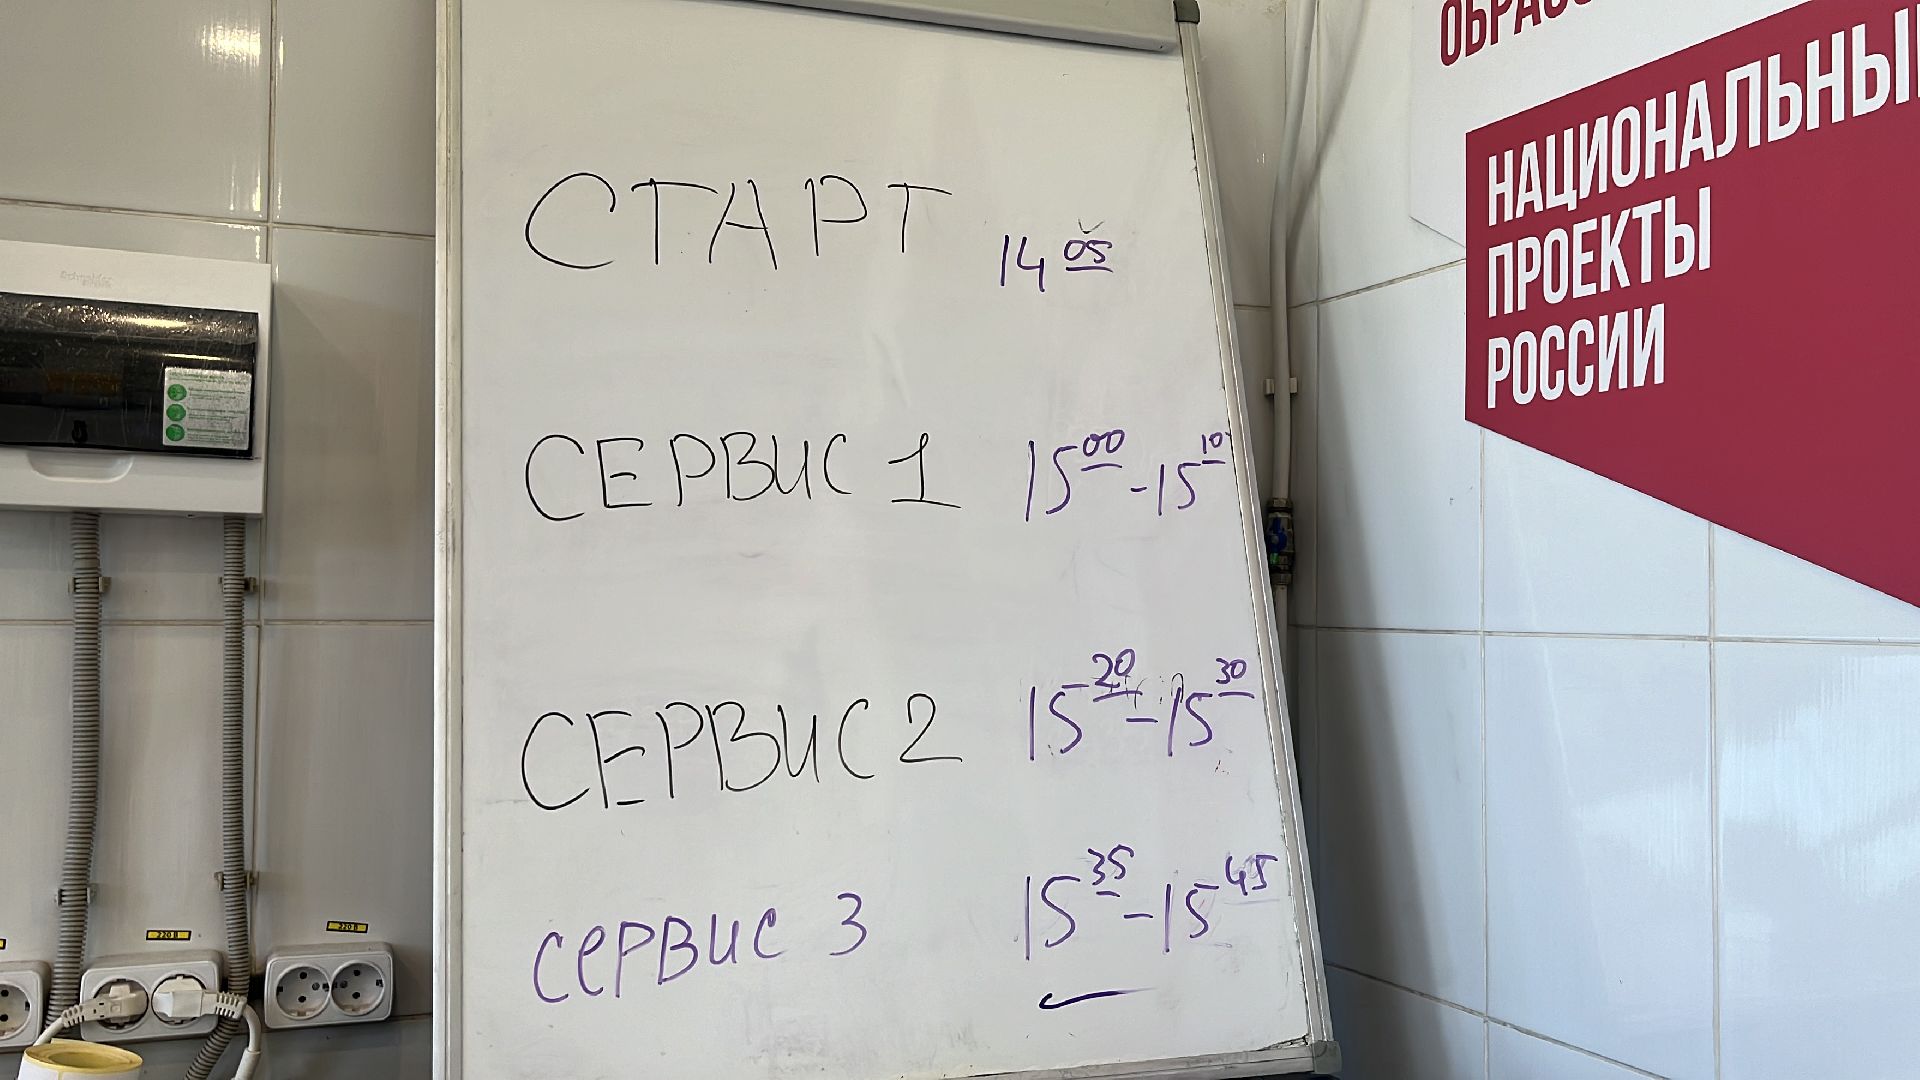 СТАРТ 14 05
СЕРВИС 1 15 00 - 15 10
СЕРВИС 2 15 20 - 15 30
сервис 3 15 35 - 15 45
НАЦИОНАЛЬНЫ
ПРОЕКТЫ
РОССИИ
220 В
220 В